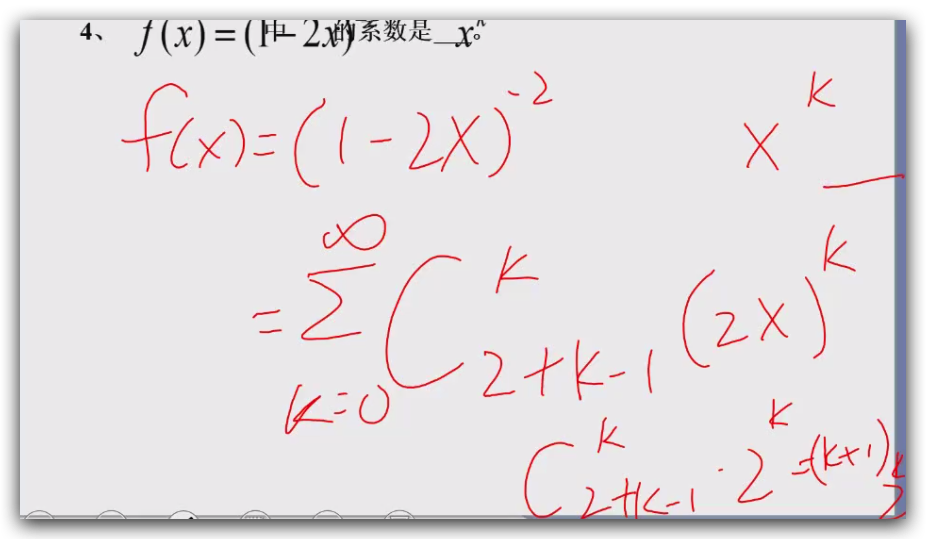 4、 f(x)=(1-2x)中的系数是__xⁿ。
f(x)=(1-2x)⁻² xᵏ
=∑ C 2+k-1 k (2x)ᵏ
∞
k=0
C 2+k-1 k ·2ᵏ=(k+1)2ᵏ